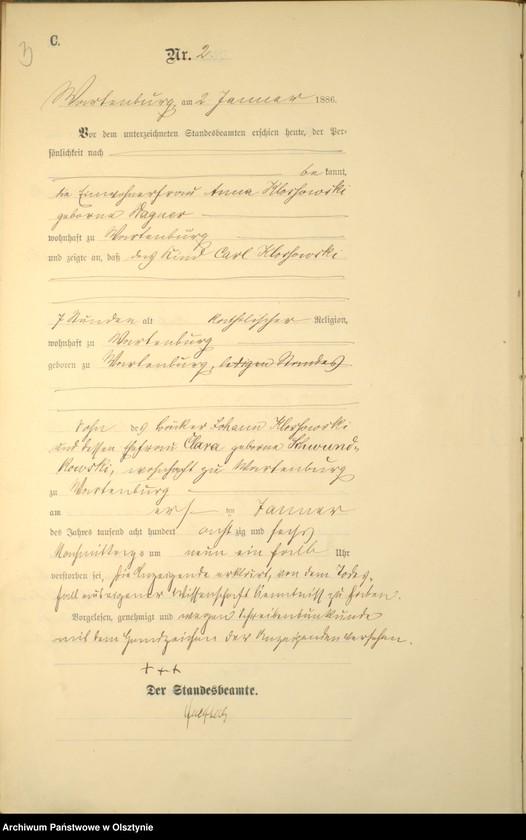 3
C.
Nr. 2
Wartenburg, am 2 Januar 1886.
Vor dem unterzeichneten Standesbeamten erschien heute, der Per-
sönlichkeit nach
be kannt,
die Einwohnerfrau Anna
geborne Wagner
wohnhaft zu Wartenburg
und zeigte an, daß das Kind Carl
7 Stunden alt katholischer Religion,
wohnhaft zu Wartenburg
geboren zu Wartenburg, ledigen Standes
Sohn des Johann
und dessen Ehefrau Clara geborne
wohnhaft zu Wartenburg
zu Wartenburg
am ersten Januar
des Jahres tausend acht hundert achtzig und sechs
Nachmittags um neun ein halb Uhr
verstorben sei, die Anzeigende erklärt, von dem Todes-
fall aus eigener Wissenschaft Kenntniß zu haben.
Vorgelesen, genehmigt und wegen Schreibensunkunde
mit dem Handzeichen der Anzeigenden versehen.
+++
Der Standesbeamte.
Archiwum Państwowe w Olsztynie